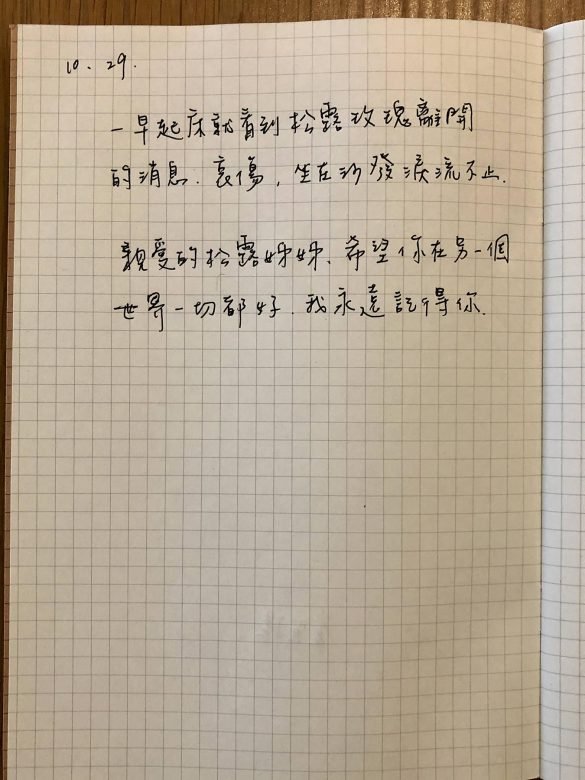 10.29.
一早起床就看到松露玫瑰離開
的消息.哀傷,坐在沙發淚流不止.
親愛的松露姊姊、希望你在另一個
世界一切都好.我永遠記得你.